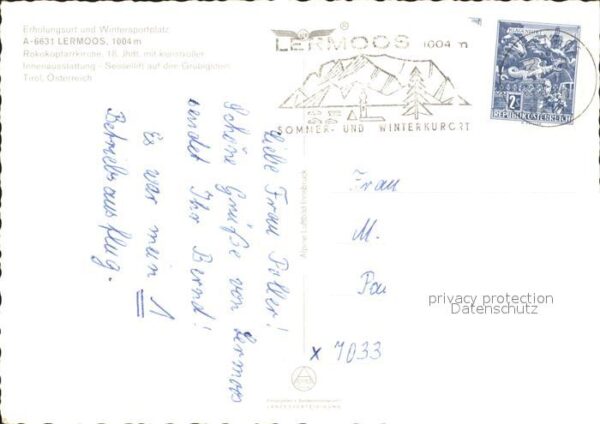 Erholungsort und Wintersportplatz
A-6631 LERMOOS, 1004 m
Rokokopfarrkirche, 18. Jhdt. mit kunstvoller
Innenausstattung - Sessellift auf den Grubigstein
Tirol, Österreich
LERMOOS 1004 m
SOMMER- UND WINTERKURORT
2 S
REPUBLIK ÖSTERREICH
Liebe Frau Poller!
Schöne Grüße von Lermoos
sendet Ihr Bernd!
Es war mein 1
Betriebsausflug.
Alpine Luftbild Innsbruck
Frau
M.
Po
privacy protection
Datenschutz
x 7033